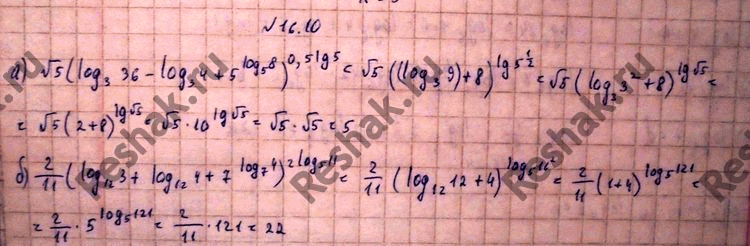 №16.10
а) √5 (log₃ 36 - log₃ 4 + 5^(log₅ 8))^(0,5 lg 5) = √5 ((log₃ 9) + 8)^(lg 5^(1/2)) = √5 (log₃ 3² + 8)^(lg √5) =
= √5 (2+8)^(lg √5) = √5 · 10^(lg √5) = √5 · √5 = 5
б) 2/11 (log₁₂ 3 + log₁₂ 4 + 7^(log₇ 4))^(2 log₅ 11) = 2/11 (log₁₂ 12 + 4)^(log₅ 11²) = 2/11 (1+4)^(log₅ 121) =
= 2/11 · 5^(log₅ 121) = 2/11 · 121 = 22
Reshak.ru
Reshak.ru
Reshak.ru
Reshak.ru